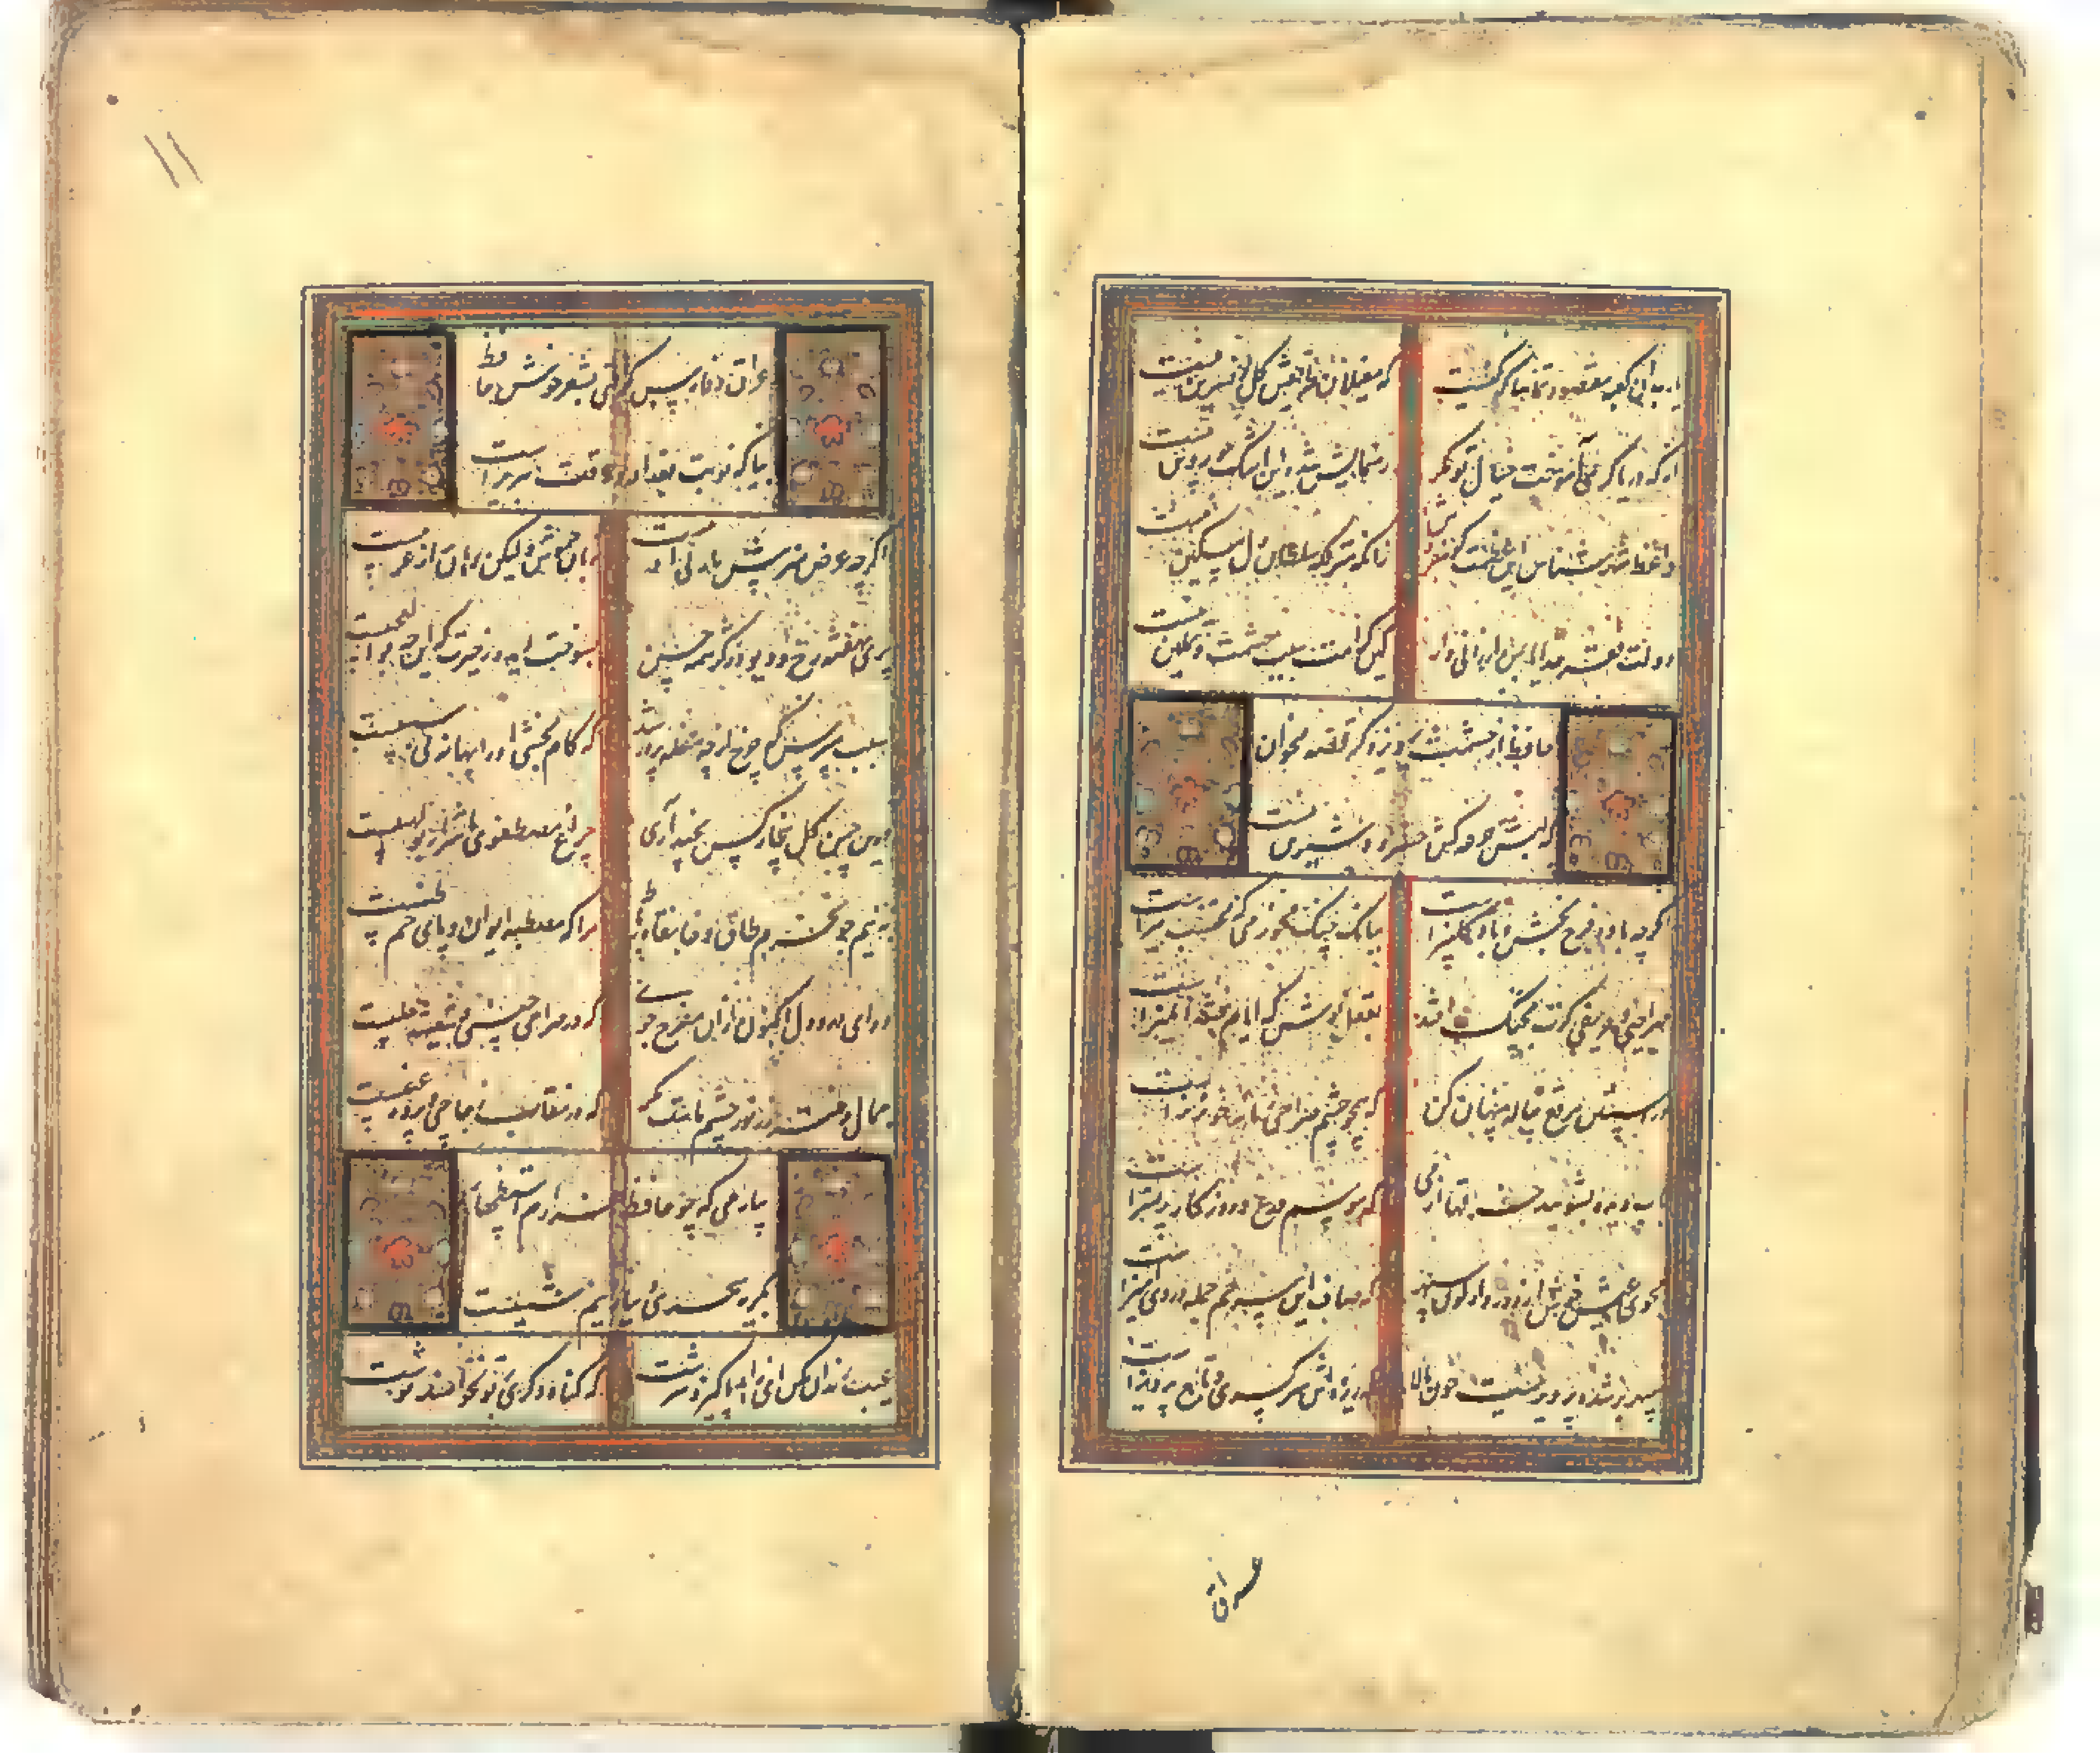 یارب این کعبه مقصود تماشاگه کیست
که مغیلان طریقش گل و نسرین منست
آنکه دریا کرمی آموخت خیال تو مگر
رهنمایش شد و این اشک چو پروین منست
واعظ شهر شناس این عظمت گو مفروش
زانکه منزلگه سلطان دل مسکین منست
دولت فقر خدایا بمن ارزانی دار
کین کرامت سبب حشمت و تمکین منست
حافظ از حشمت پرویز دگر قصه مخوان
که لبش جرعه کش خسرو شیرین منست
اگرچه باده فرح بخش و باد گلبیزست
ببانک چنگ مخور می که محتسب تیزست
صراحیی و حریفی گرت بچنگ افتد
بعقل نوش که ایام فتنه انگیزست
در آستین مرقع پیاله پنهان کن
که همچو چشم صراحی زمانه خونریزست
بآب دیده بشویید خرقها از می
که موسم ورع و روزگار پرهیزست
مجوی عیش خوش از دور واژگون سپهر
که صاف این سر خم جمله دردی آمیزست
سپهر بر شده پرویزنیست خون پالا
که ریزه اش سر کسری و تاج پرویزست
عراق
عراق و فارس گرفتی بشعر خوش حافظ
بیا که نوبت بغداد و وقت تبریزست
اگرچه عرض هنر پیش یار بی ادبیست
زبان خموش ولیکن دهان پر از عربیست
پری نهفته رخ و دیو در کرشمه حسن
بسوخت دیده ز حیرت که این چه بوالعجبیست
سبب مپرس که چرخ از چه سفله پرور شد
که کام بخشی او را بهانه بی سببیست
درین چمن گل بی خار کس نچید آری
چراغ مصطفوی با شرار بولهبیست
به نیم جو نخرم طاق خانقاه و رباط
مرا که مصطبه ایوان و پای خم طنبیست
دوای درد دل اکنون از آن مفرح جوی
که در صراحی چینی و شیشه حلبیست
جمال دختر رز نور چشم ماست مگر
که در نقاب زجاجی و پرده عنبیست
بیار می که چو حافظ مدام استظهار
بگریه سحری و نیاز نیم شبیست
عیب رندان مکن ای زاهد پاکیزه سرشت
که گناه دگری بر تو نخواهند نوشت
۱۱